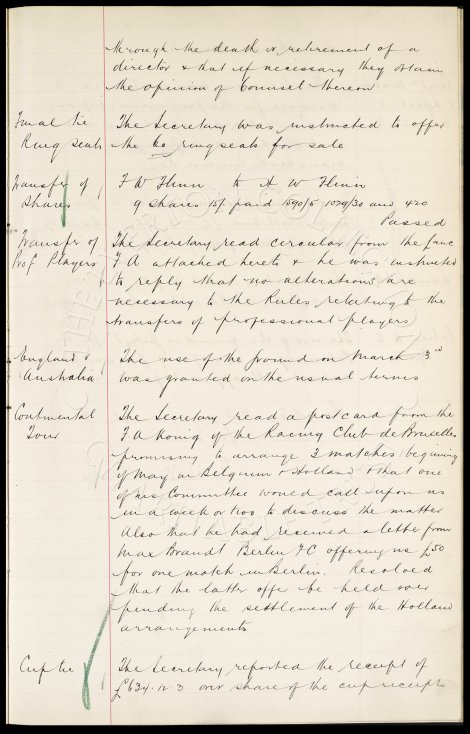 through the death or retirement of a
director & that if necessary they obtain
the opinion of Counsel thereon
Final tie
Ring Seats
The Secretary was instructed to offer
the ring seats for sale
Transfer of
Shares
F W Flinn to A W Flinn
9 shares 15/ paid 1590/5 1029/30 and 420
Passed
Transfer of
Prof Players
The Secretary read circular from the Lanc
F A attached hereto & he was instructed
to reply that no alterations are
necessary to the Rules relating to the
transfers of professional players
England v
Australia
The use of the ground on March 3rd
was granted on the usual terms
Continental
Tour
The Secretary read a postcard from the
F A Konig of the Racing Club de Bruxelles
promising to arrange 3 matches begining
of May in Belgium & Holland & that one
of his Committee would call upon us
in a week or two to discuss the matter
Also that he had received a letter from
Max Brandt Berlin F C offering us £50
for one match in Berlin. Resolved
that the latter offer be held over
pending the settlement of the Holland
arrangements
Cup tie
The Secretary reported the receipt of
£634.12.3 our share of the cup receipts